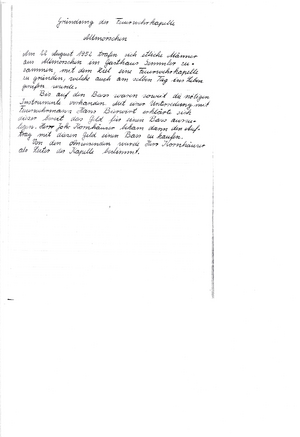 Gründung der Feuerwehrkapelle
Allmonschen
Am 22. August 1956 trafen sich etliche Männer
aus Allmonschen im Gasthaus Sommler zu-
sammen, mit dem Ziel eine Feuerwehrkapelle
zu gründen, welche auch am selben Tag ins Leben
gerufen wurde.
Bis auf den Bass waren soweit die nötigen
Instrumente vorhanden. Mit einer Unterredung mit
Feuerwehrmann Hans erklärte sich
dieser bereit das Geld für einen Bass auszu-
legen. Herr Joh. Kornhäuser bekam dann den Auf-
trag mit diesem Geld einen Bass zu kaufen.
Von den Anwesenden wurde Herr Kornhäuser
als Leiter der Kapelle bestimmt.